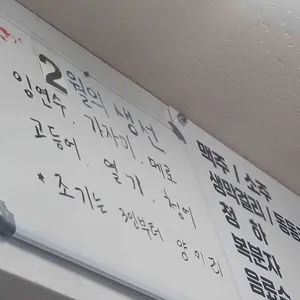 2월의 생선
임연수 . 가자미 . 메로
고등어 . 열기 . 청어
* 조기는 3인부터 양이리
맥주 | 소주
생막걸리 |
청하
복분자
음료수